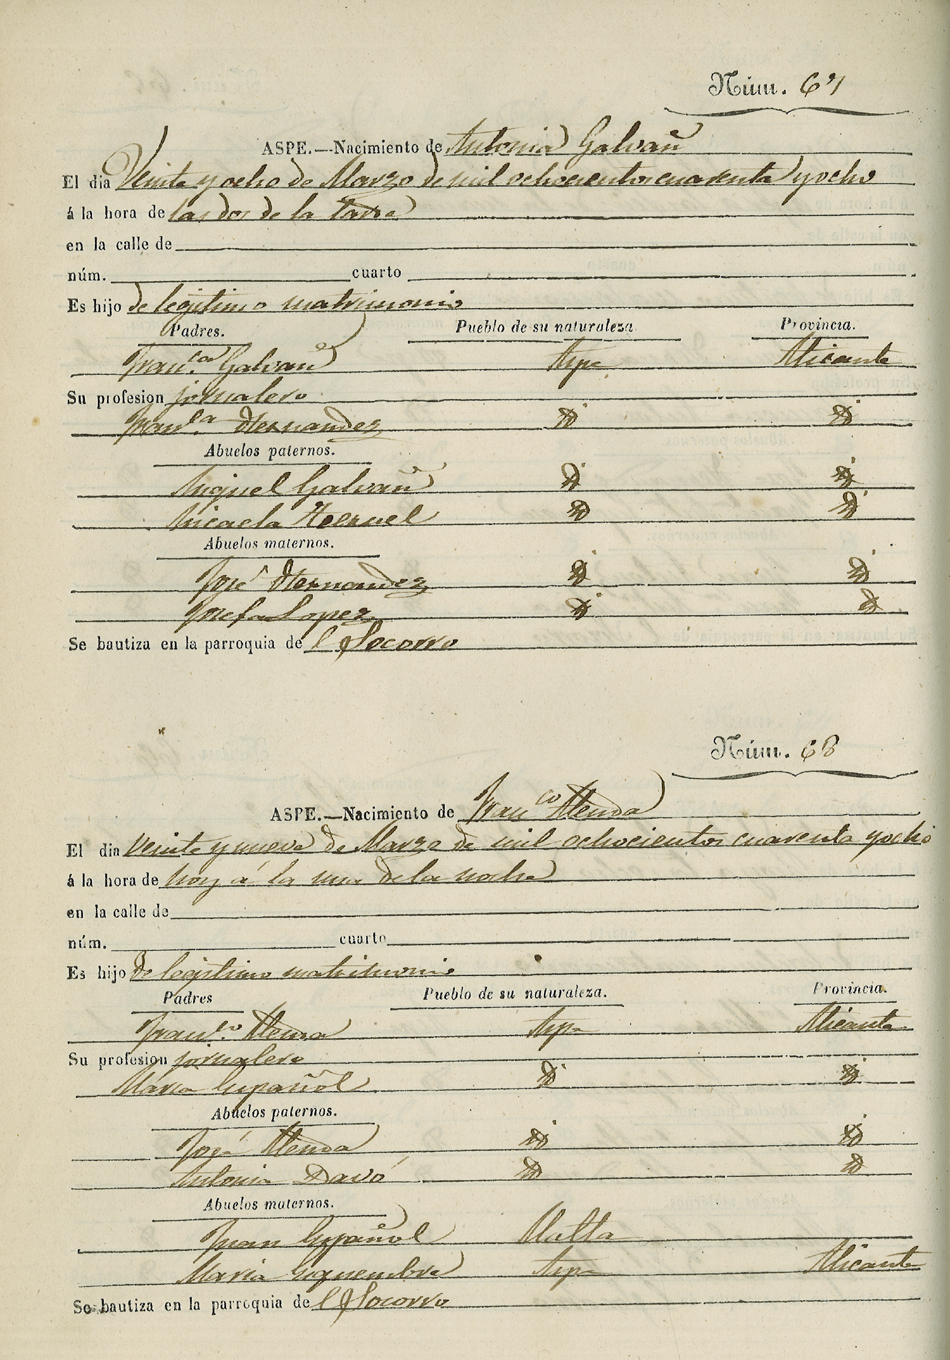 Núm. 67
ASPE.—Nacimiento de Antonia Galvañ
El dia Veinte y ocho de Marzo de mil ochocientos cuarenta y ocho
á la hora de las dos de la tarde
en la calle de
núm. cuarto
Es hijo de legitimo matrimonio
Padres. Pueblo de su naturaleza Provincia.
Fran.co Galvañ Aspe Alicante
Su profesion jornalero
Fran.ca Hernandez
Abuelos paternos.
Miguel Galvañ
Micaela
Abuelos maternos.
José Hernandez
Josefa Lopez
Se bautiza en la parroquia de l Socorro
Núm. 68
ASPE.—Nacimiento de Fran.co
El dia Veinte y nueve de Marzo de mil ochocientos cuarenta y ocho
á la hora de hoy á la una de la noche
en la calle de
núm. cuarto
Es hijo de legitimo matrimonio
Padres Pueblo de su naturaleza. Provincia.
Fran.co Aspe Alicante
Su profesion jornalero
Maria Español
Abuelos paternos.
José
Antonia Davó
Abuelos maternos.
Juan Español
Maria Aspe Alicante
Se bautiza en la parroquia de l Socorro